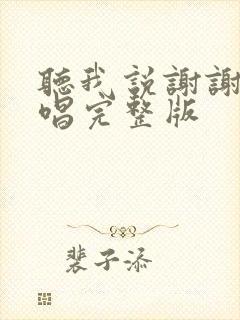 聽我説謝謝
唱完整版
裴子添